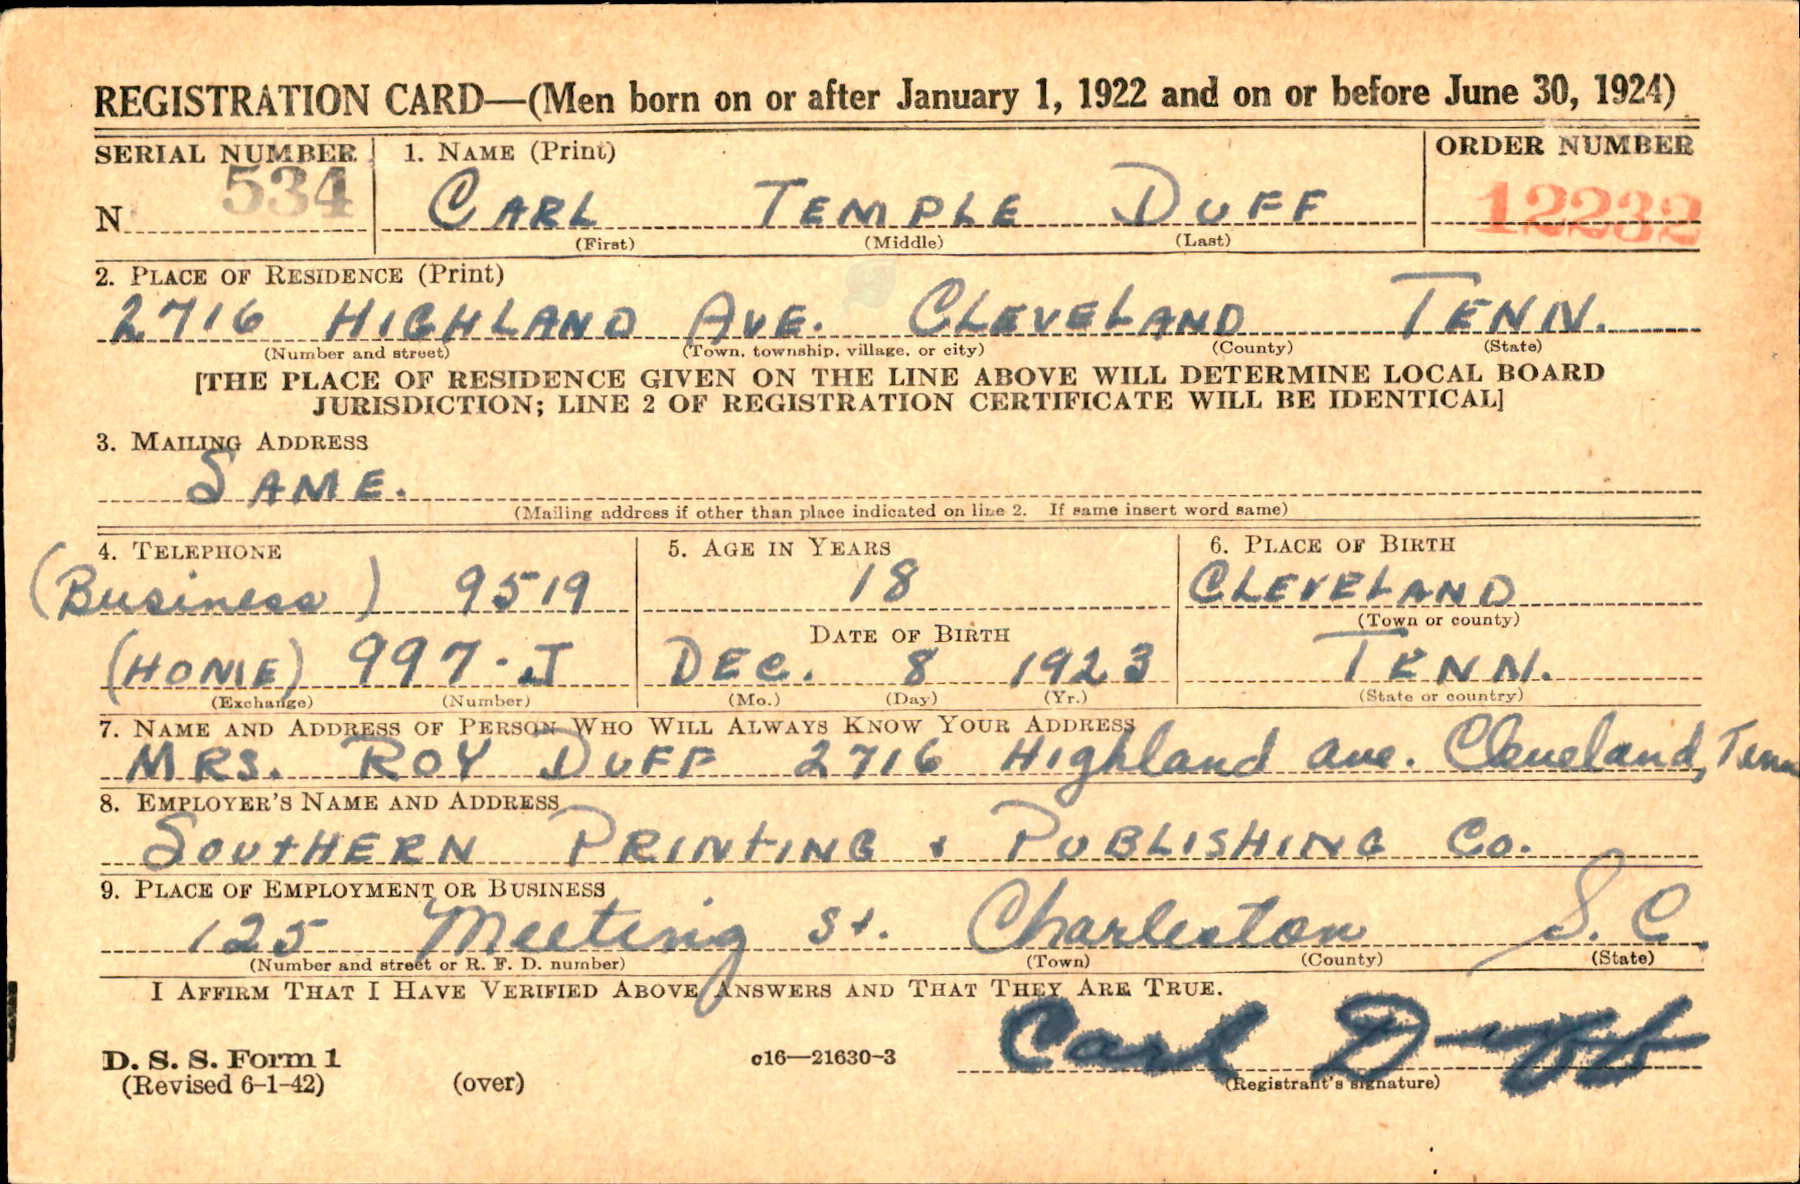 REGISTRATION CARD—(Men born on or after January 1, 1922 and on or before June 30, 1924)
SERIAL NUMBER
N 534
1. NAME (Print)
CARL TEMPLE DUFF
(First) (Middle) (Last)
ORDER NUMBER
12232
2. PLACE OF RESIDENCE (Print)
2716 HIGHLAND AVE. CLEVELAND TENN.
(Number and street) (Town, township, village, or city) (County) (State)
[THE PLACE OF RESIDENCE GIVEN ON THE LINE ABOVE WILL DETERMINE LOCAL BOARD
JURISDICTION; LINE 2 OF REGISTRATION CERTIFICATE WILL BE IDENTICAL]
3. MAILING ADDRESS
SAME.
(Mailing address if other than place indicated on line 2. If same insert word same)
4. TELEPHONE
(Business) 9519
(HOME) 997-J
(Exchange) (Number)
5. AGE IN YEARS
18
DATE OF BIRTH
DEC. 8 1923
(Mo.) (Day) (Yr.)
6. PLACE OF BIRTH
CLEVELAND
(Town or county)
TENN.
(State or country)
7. NAME AND ADDRESS OF PERSON WHO WILL ALWAYS KNOW YOUR ADDRESS
MRS. ROY DUFF 2716 Highland ave. Cleveland, Tenn
8. EMPLOYER'S NAME AND ADDRESS
SOUTHERN PRINTING & PUBLISHING CO.
9. PLACE OF EMPLOYMENT OR BUSINESS
125 Meeting St. Charleston S. C.
(Number and street or R. F. D. number) (Town) (County) (State)
I AFFIRM THAT I HAVE VERIFIED ABOVE ANSWERS AND THAT THEY ARE TRUE.
Carl Duff
(Registrant's signature)
D. S. S. Form 1
(Revised 6-1-42) (over) c16—21630-3